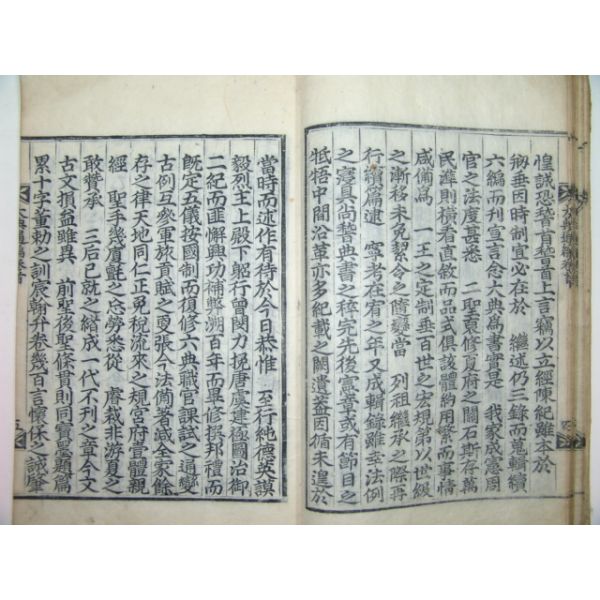 惶誠恐稽首稽首上言竊以立經陳紀雖本於
朔垂因時制宜必在於 繼述仍三錄而蒐輯續
六編而刊宣言念大典爲書實是 我家成憲周
官之法度甚悉 二聖夏修夏府之關石斯存萬
民雖則橫看直敘而品式俱該體約用繁而事情
咸備爲 一王之定制垂百世之宏規第以世級
之漸移未免絜令之隨變當 列祖繼承之際再
行續篇逮 寧考在宥之年又成輯錄雖垂法例
之寔具尚替典書之稡完先後憲章或有節目之
牴牾中間沿革亦多紀載之闕遺蓋因循未遑於
當時而述作有待於今日恭惟 至行純德英謨
毅烈主上殿下躬行曾閔力挽唐虞建極圖治御
二紀而匪懈興功補弊溯百年而畢修撰邦禮而
旣定五儀按國制而復修六典職官課試之通變
古例互參軍旅貢賦之更張今法備著減全家餘
存之律天地同仁正免稅流來之規宮府壹體親
經 聖手幾度氈之念勞悉從 睿裁非游夏之
敢贊承 三后已就之緖成一代不刊之章今文
古文損益雖異 前聖後聖條貫則同寶墨題篇
累十字董勅之訓宸翰弁卷幾百言懷保之誠肇
大典通編
五